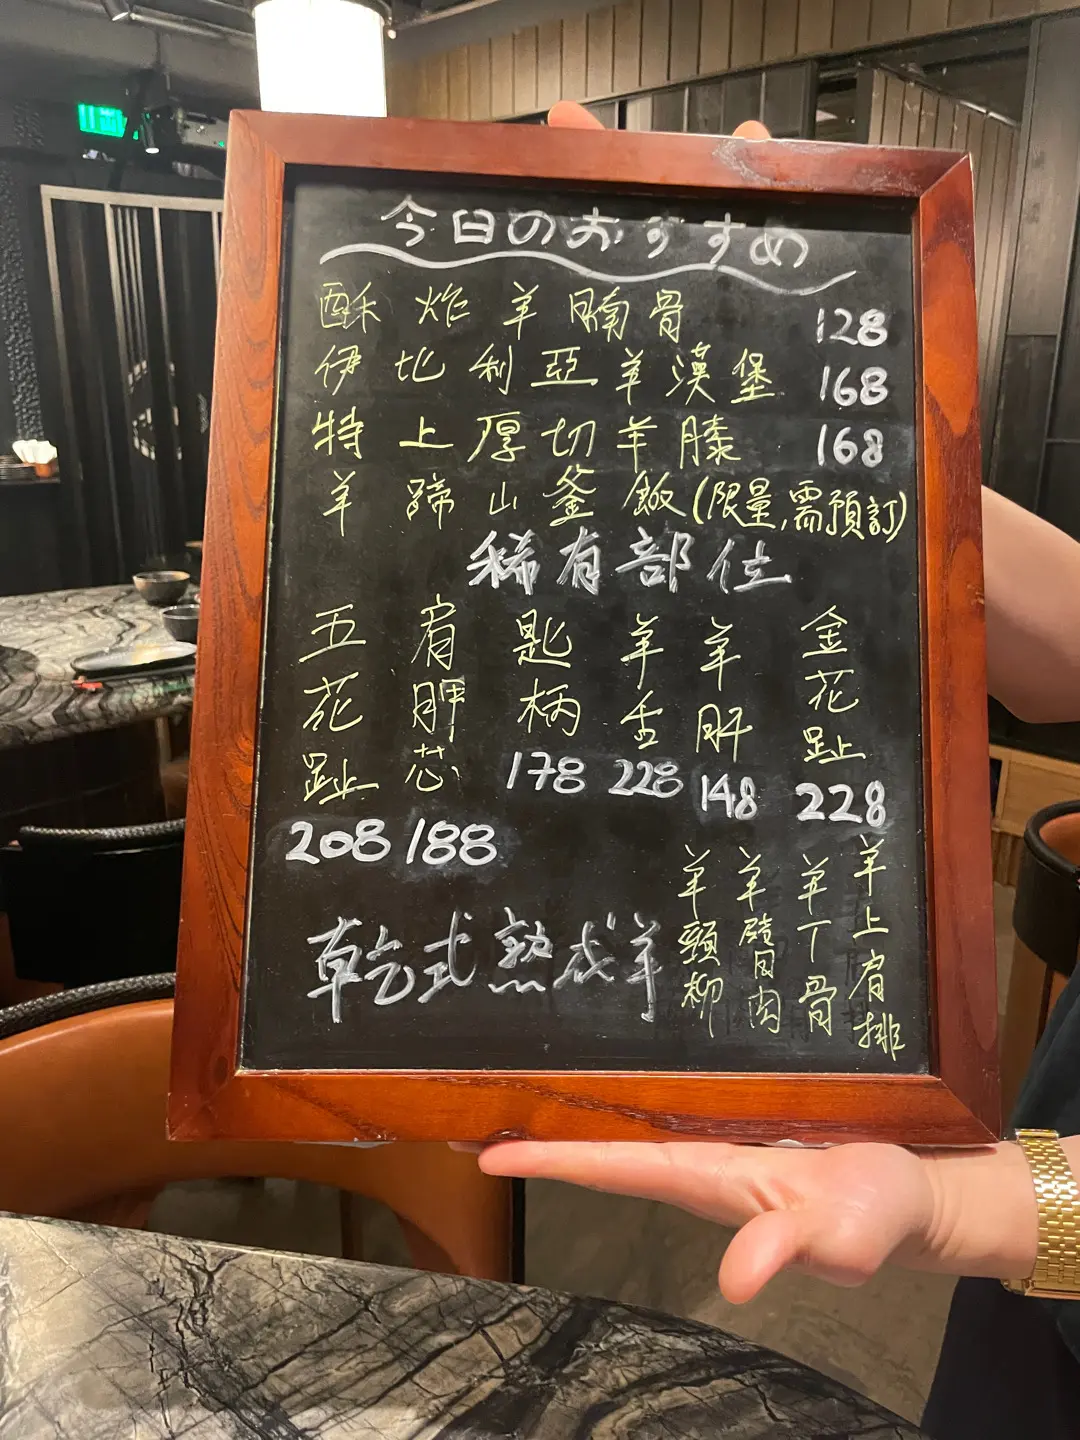 今日のおすすめ
酥炸羊腩骨 128
伊比利亞羊漢堡 168
特上厚切羊膝 168
羊蹄山釜飯(限量,需預訂)
稀有部位
五花趾 208
肩胛芯 188
匙柄 178
羊舌 228
羊肝 148
金花趾 228
乾式熟成羊
羊頸柳
羊肉
羊丁骨
羊上肩排